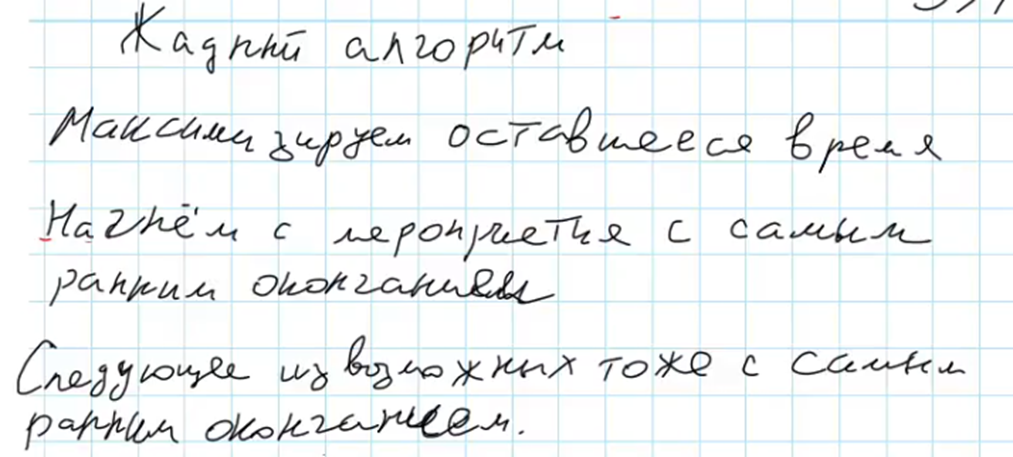 Жадный алгоритм
Максимизируем оставшееся время
Начнём с мероприятия с самым
ранним окончанием
Следующее из возможных тоже с самым
ранним окончанием.